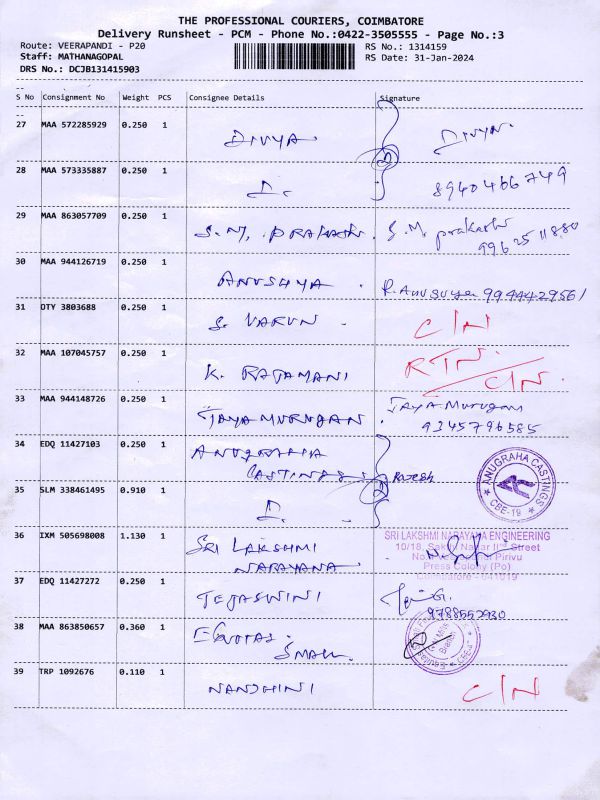 THE PROFESSIONAL COURIERS, COIMBATORE
Delivery Runsheet - PCM - Phone No.:0422-3505555 - Page No.:3
Route: VEERAPANDI - P20
RS No.: 1314159
Staff: MATHANAGOPAL
RS Date: 31-Jan-2024
DRS No.: DCJB131415903
S No Consignment No Weight PCS Consignee Details Signature
27 MAA 572285929 0.250 1 DIVYA Divya
28 MAA 573335887 0.250 1 D. 8940466749
29 MAA 863057709 0.250 1 S.M. PRAKASH. S.M. prakash
9962511880
30 MAA 944126719 0.250 1 ANUSUYA. R.Anusuya 9944429561
31 OTY 3803688 0.250 1 S. VARUN C/N
32 MAA 107045757 0.250 1 K. RAJAMANI RTN. C/N.
33 MAA 944148726 0.250 1 JAYAMURUGAN. JAYAMurugan
9345796585
34 EDQ 11427103 0.250 1 ANUGRAHA
CASTINGS
ANUGRAHA CASTINGS
CBE-19
35 SLM 338461495 0.910 1 D.
36 IXM 505698008 1.130 1 SRI LAKSHMI
NARAYANA
SRI LAKSHMI NARAYANA ENGINEERING
10/18, Nagar IInd Street
Pirivu
Press Colony (Po)
Coimbatore - 641019
37 EDQ 11427272 0.250 1 TEJASWINI
9788552930
38 MAA 863850657 0.360 1
SMALL.
39 TRP 1092676 0.110 1 NANDHINI C/N